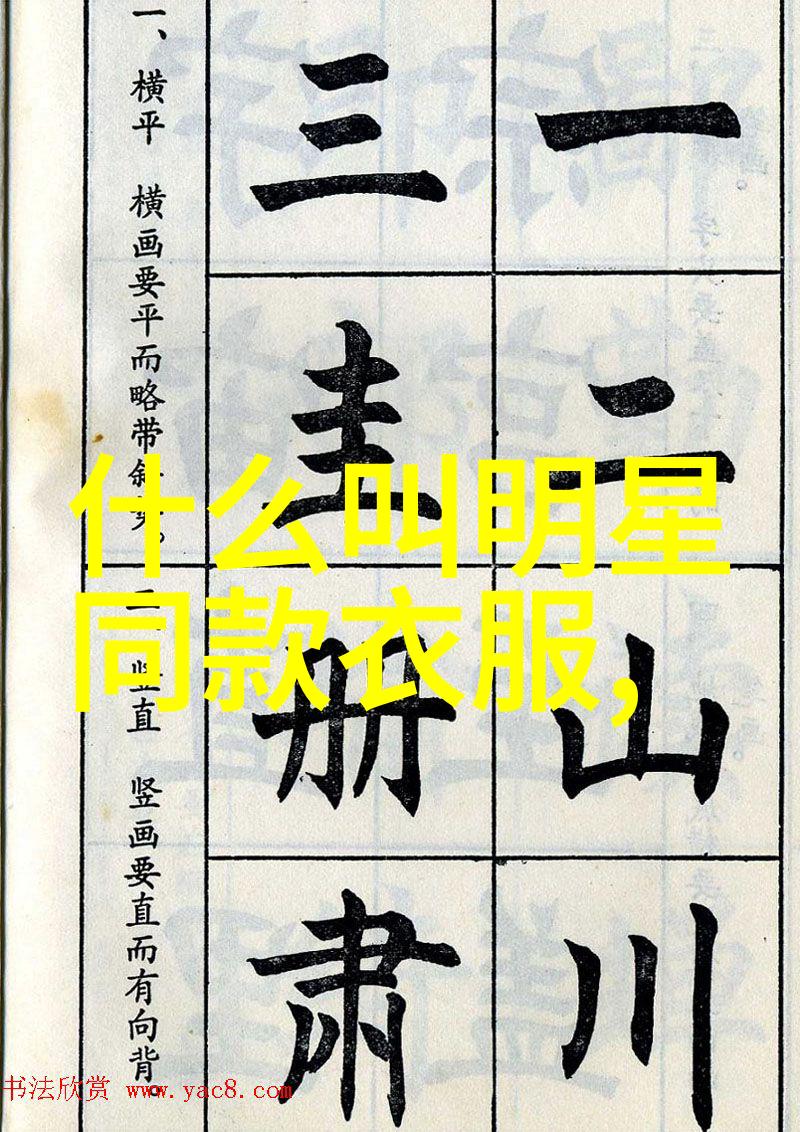 一
二
山
川
三
圭
册
肃
一、横平 横画要平而略带斜势。
二、竖直 竖画要直而有向背。
什么叫明星
同款衣服,
书法欣赏 www.yac8.com